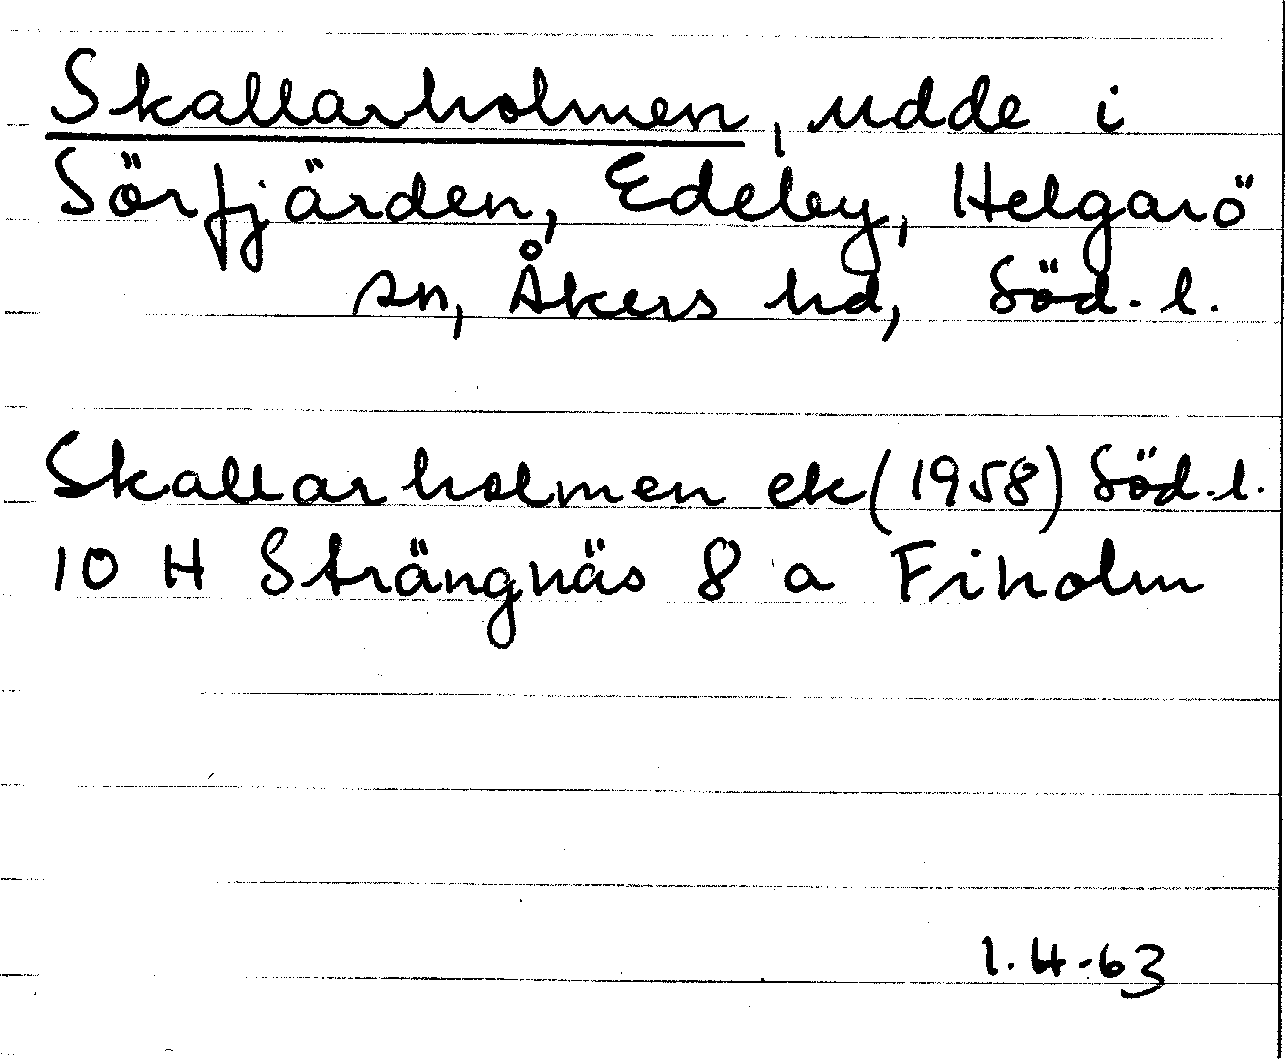 Skallarholmen, udde i
Sörfjärden, Edeby, Helgarö
sn, Åkers hd, Söd. l.
Skallarholmen ek (1958) Söd. l.
10 H Strängnäs 8 a Fiholm
1.4.63